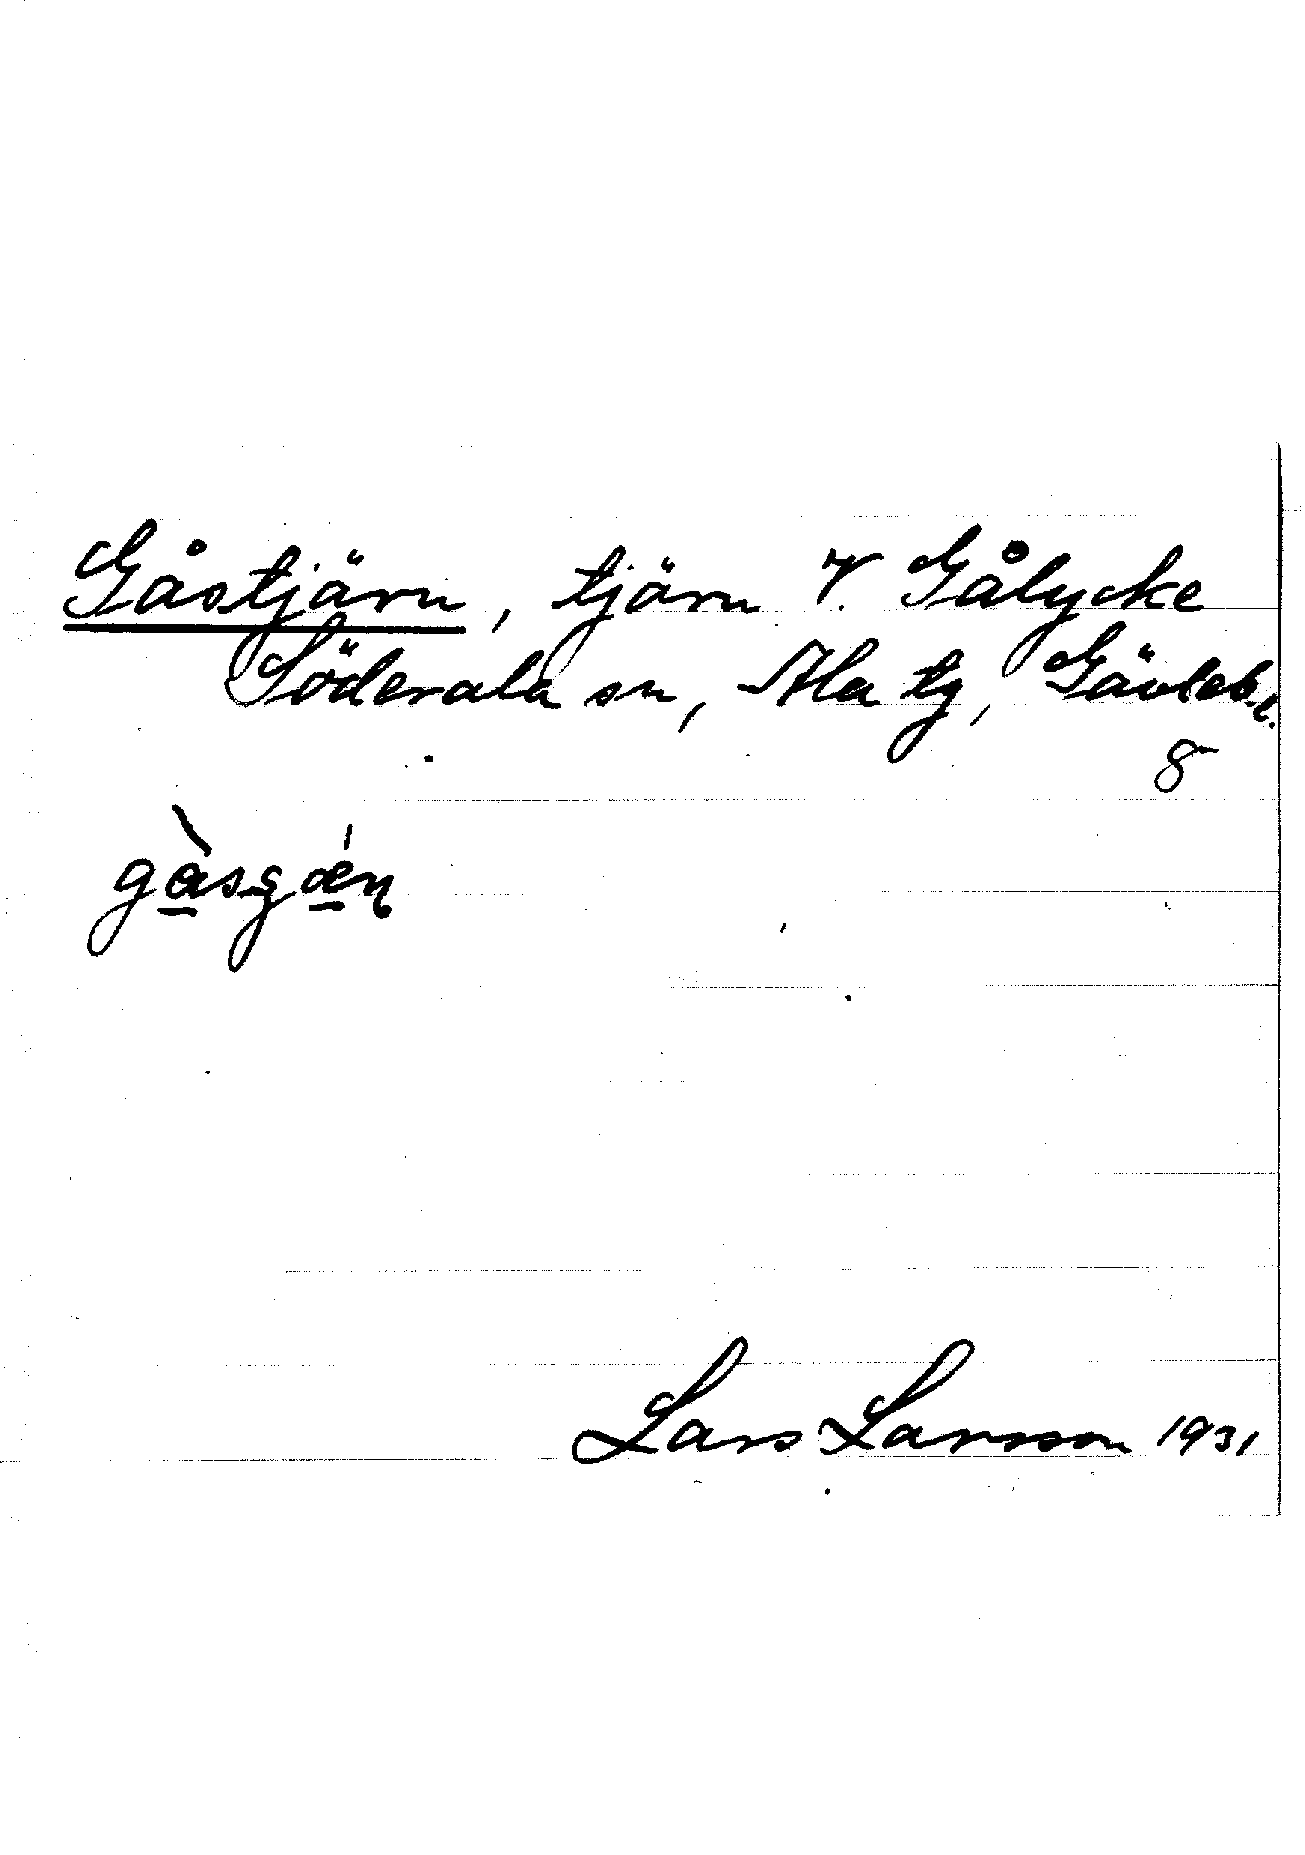 Gåstjärn, tjärn V. Gålycke
Söderala sn, Ala tg, Gävleb.l.
8
gàsgǽn
Lars Larsson 1931